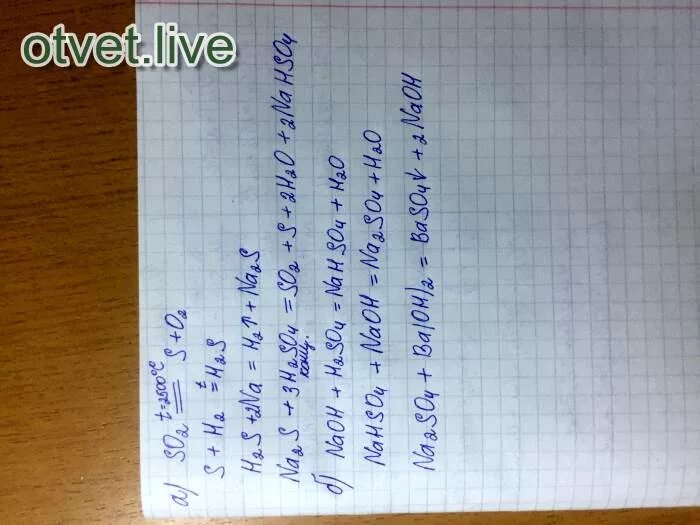 otvet.live
а) SO₂ t=2500°C = S + O₂
S + H₂ t = H₂S
H₂S + 2Na = H₂↑ + Na₂S
Na₂S + 3H₂SO₄ = SO₂ + S + 2H₂O + 2NaHSO₄
конц.
б) NaOH + H₂SO₄ = NaHSO₄ + H₂O
NaHSO₄ + NaOH = Na₂SO₄ + H₂O
Na₂SO₄ + Ba(OH)₂ = BaSO₄↓ + 2NaOH